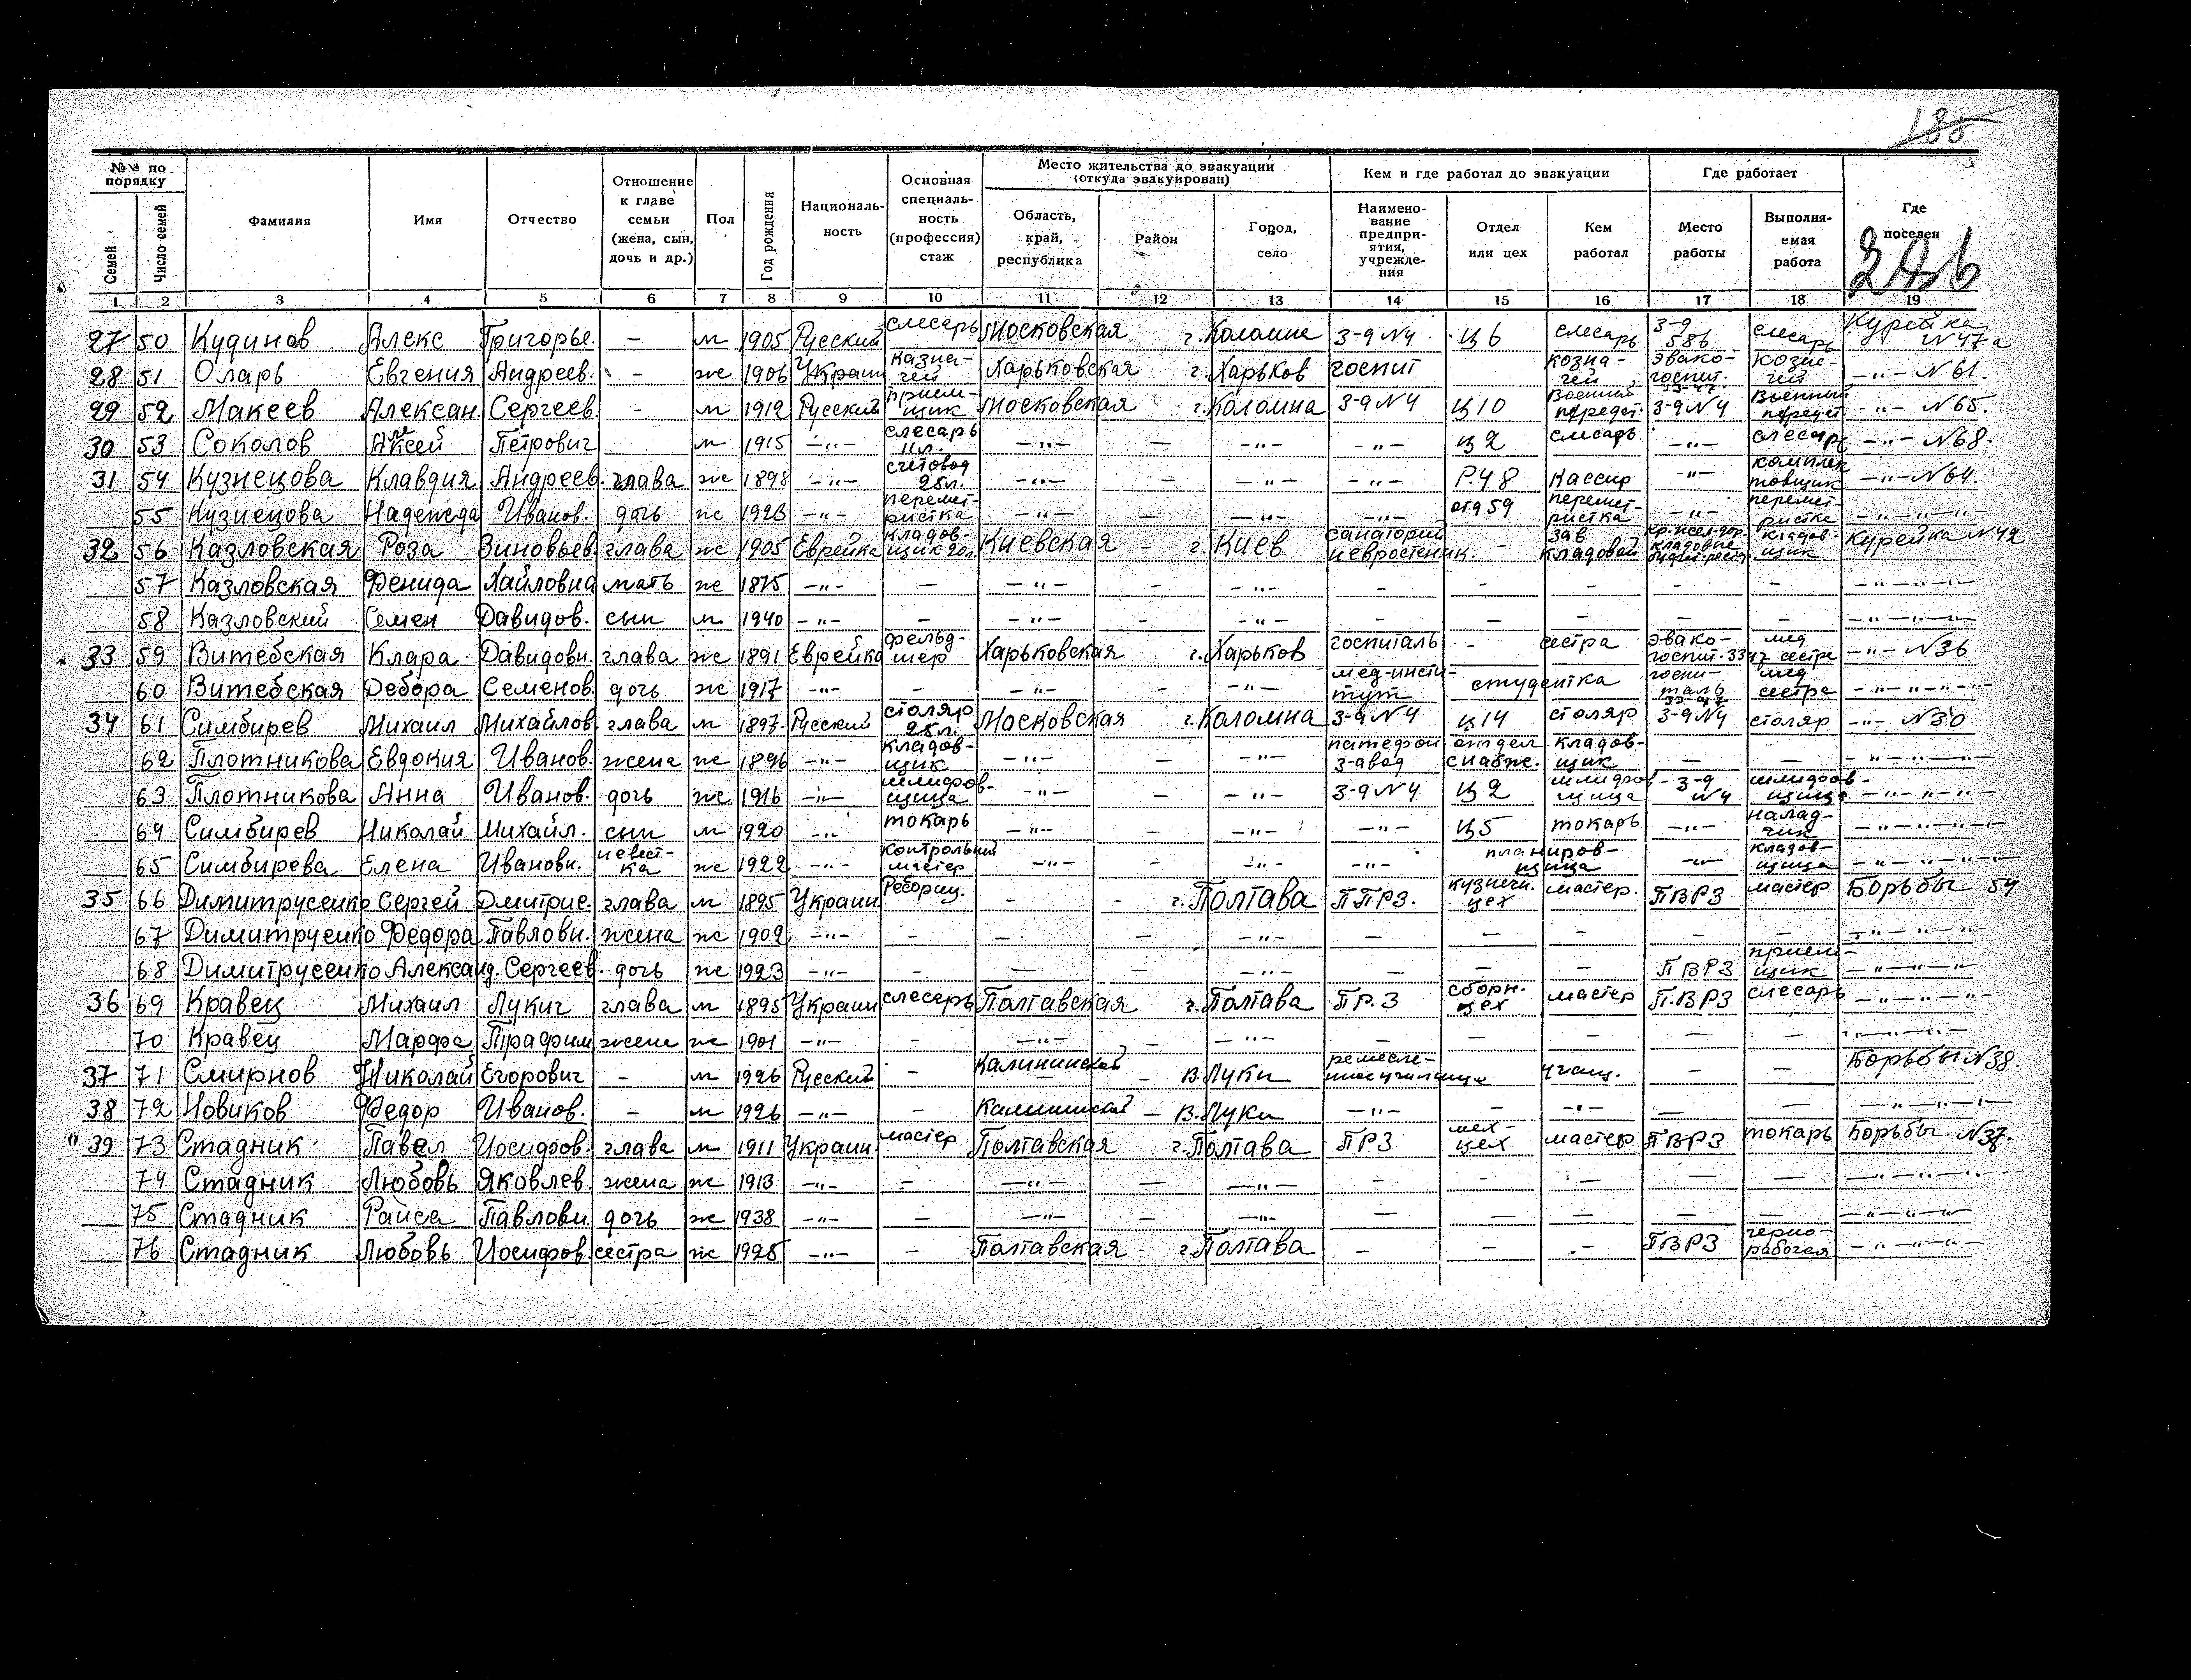 188
№№ по порядку
Семей
Число семей
Фамилия
Имя
Отчество
Отношение к главе семьи (жена, сын, дочь и др.)
Пол
Год рождения
Националь-ность
Основная специаль-ность (профессия) стаж
Место жительства до эвакуации (откуда эвакуирован)
Область, край, республика
Район
Город, село
Кем и где работал до эвакуации
Наимено-вание предпри-ятия, учрежде-ния
Отдел или цех
Кем работал
Где работает
Место работы
Выполня-емая работа
Где поселен
1 2 3 4 5 6 7 8 9 10 11 12 13 14 15 16 17 18 19
27 50 Кудинов Алекс Григорье. - м 1905 Русский слесарь Московская г. Коломне З-д N4 ц 6 слесарь З-д 586 слесарь Курейка N 47а
28 51 Оларь Евгения Андреев. - ж 1906 Украин казна-чей Харьковская г. Харьков госпит козна-чей эвако-госпит. 33-47 козна-чей -"- N61.
29 52 Макеев Алексан. Сергеев. - м 1912 Русский прием-щик Московская г. Коломна З-д N4 ц 10 Военный предст. З-д N4 Военный предст -"- N65.
30 53 Соколов Алксей Петрович м 1915 -"- слесарь 11л. -"- - -"- -"- ц 2 слесарь -"- слесарь -"- N68.
31 54 Кузнецова Клавдия Андреев. глава ж 1898 -"- счетовод 25л. -"- - -"- -"- Р.48 Кассир -"- комплек товщик -"- N64.
55 Кузнецова Надежеда Иванов. дочь ж 1923 -"- перемет-ристка -"- - -"- -"- отд 59 перемет-ристка -"- перемет-ристка -"-"-"-
32 56 Казловская Роза Зиновьев. глава ж 1905 Еврейка кладов-щик 20л. Киевская - г. Киев санаторий невростеник. - зав кладовой кладов-щик Курейка N42
57 Казловская Фенида Хайловна мать ж 1875 -"- - -"- - -"- - - - - - -"-"-"-
58 Казловский Семен Давидов. сын м 1940 -"- - -"- - -"- - - - - - -"-"-"-
33 59 Витебская Клара Давидовн. глава ж 1891 Еврейка фельд-шер Харьковская г. Харьков госпиталь - сестра эвако-госпит. 3347 мед сестра -"- N36
60 Витебская Дебора Семенов. дочь ж 1917 -"- - -"- - -"- мед-инсти-тут студентка госпи-таль 33-47 мед сестра -"-"-"-"-
34 61 Симбирев Михаил Михайлов. глава м 1897 Русский столяр 25л. Московская г. Коломна З-д N4 ц 14 столяр З-д N4 столяр -"- N30
62 Плотникова Евдокия Иванов. жена ж 1896 -"- кладов-щик -"- - -"- патефон з-авод отдел снабже. кладов-щик - - -"-"-"-
63 Плотникова Анна Иванов. дочь ж 1916 -"- шлифов-щица -"- - -"- З-д N4 ц 2 шлифов-щица З-д N4 шлифов-щица -"-"-"-
64 Симбирев Николай Михайл. сын м 1920 -"- токарь -"- - -"- -"- ц 5 токарь -"- налад-чик -"-"-"-
65 Симбирева Елена Ивановн. невест-ка ж 1922 -"- контрольный мастер -"- - -"- -"- планиров-щица -"- кладов-щица -"-"-"-
35 66 Димитрусенко Сергей Дмитрие. глава м 1895 Украин - - г. Полтава ППРЗ. кузнечн. цех мастер. ПВРЗ мастер Борьбы 54
67 Димитрусенко Федора Павловн. жена ж 1902 -"- - - - -"- - - - - - -"-"-"-
68 Димитрусенко Александ. Сергеев. дочь ж 1923 -"- - - - -"- - - - ПВРЗ прием-щик -"-"-"-
36 69 Кравец Михаил Лукич глава м 1895 Украин слесарь Полтавская г. Полтава ПР.З сборн. цех мастер П.ВРЗ слесарь -"-"-"-
70 Кравец Марфа Трафим жена ж 1901 -"- - -"- - -"- - - - - - -"-"-"-
37 71 Смирнов Николай Егорович - м 1926 Русский - Калининской - В.Луки ремесле-нное училище учащ. - - Борьбы N38.
38 72 Новиков Федор Иванов. - м 1926 -"- - Калининской - В.Луки -"- - -"- - - -"-"-"-
39 73 Стадник Павел Иосифов. глава м 1911 Украин. мастер Полтавская г. Полтава ПРЗ мех-цех мастер ПВРЗ токарь Борьбы N37.
74 Стадник Любовь Яковлев. жена ж 1913 -"- - -"- - -"- - - - - - -"-"-"-
75 Стадник Раиса Павловн дочь ж 1938 -"- - -"- - -"- - - - - - -"-"-"-
76 Стадник Любовь Иосифов. сестра ж 1925 -"- - Полтавская - г. Полтава - - - ПВРЗ черно-рабочая -"-"-"-